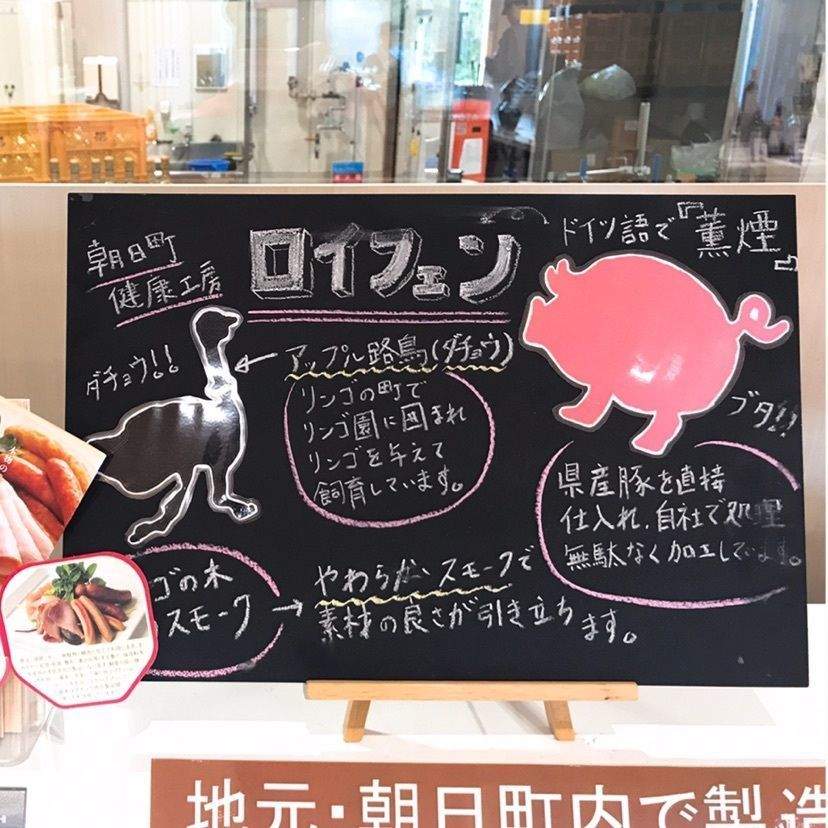 朝日町
健康工房
ロイフェン
ドイツ語で『薫煙』
ダチョウ!!
アップル路鳥(ダチョウ)
リンゴの町で
リンゴ園に囲まれ
リンゴを与えて
飼育しています。
ブタ!!
県産豚を直接
仕入れ、自社で処理
無駄なく加工しています。
ゴの木
スモーク
やわらかスモークで
素材の良さが引き立ちます。
地元・朝日町内で製造